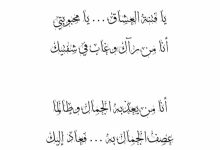 يا فتنة العشاق ... يا محبوبتي
أنا من رآك وغاب في شفتيك
أنا من يعذبه الجمال وطالما
عصف الجمال به ... فعاد إليك